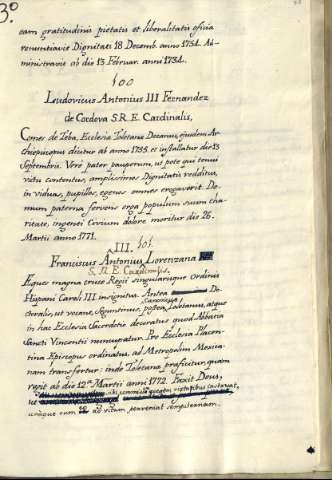 3.º
eam gratitudinis pietatis et liberalitatis oficia
renuntiavit Dignitati 18 Decemb. anno 1754. Ad-
ministravit ab die 13 Februar. anni 1754.
100
Ludovicus Antonius III Fernandez
de Cordova S.R.E. Cardinalis,
Comes de Teba, Ecclesiæ Toletanæ Decanus, ejusdem Ar-
chiepiscopus dicitur ab anno 1755 et installatur die 13
Septembris. Verè pater pauperum, ut pote qui tenui
victu contentus, amplissimos Dignitatis redditus,
in viduas, pupillos, egenos omnes erogaverit. De-
mum paterna fervens erga populum suum cha-
ritate, ingenti Civium dolore moritur die 26
Martii anno 1771.
III. 101
Franciscus Antonius Lorenzana
S. R. E. Cardinalis.
Eques magnæ crucis Regii singularisque Ordinis
Hispani Caroli III insignitus. Antea Do-
Canonicus
ctoralis, ut vocant, Seguntinus, postea Toletanus, atque
in hac Ecclesia Sacerdotio decoratus quod Abbatia
Sancti Vincentii nuncupatur. Pro Ecclesia Placen-
tina Episcopus ordinatus, ad Metropolim Mexica-
nam transfertur: inde Toletanæ præficitur, quam
regit ab die 12ª Martii anni 1772. Faxit Deus,
utrâque cum ad vitam perveniat sempiternam.